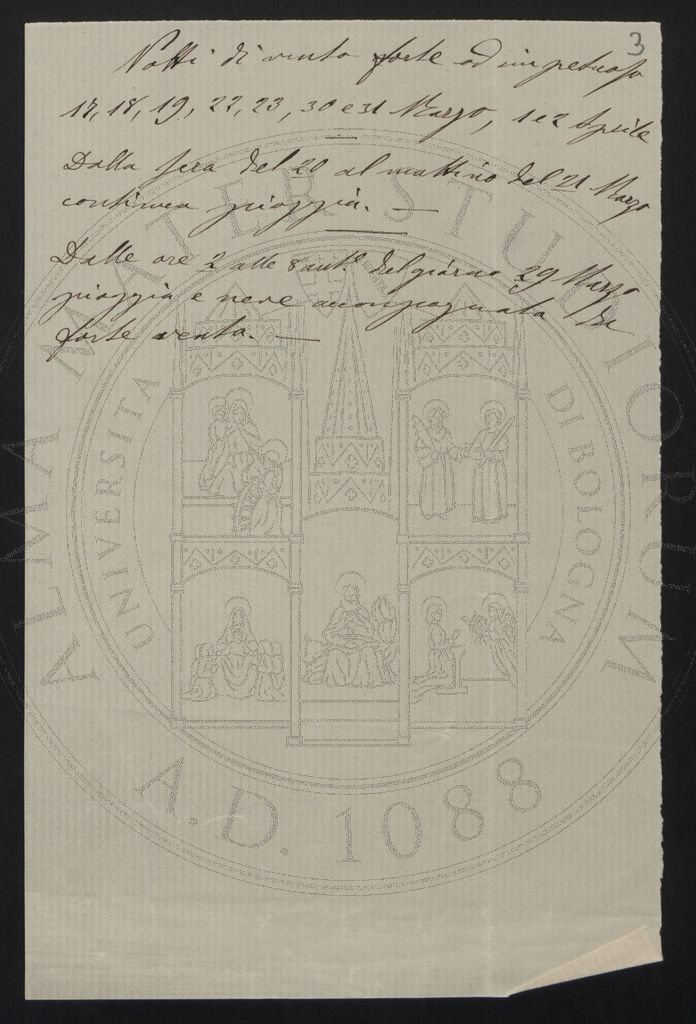 3
Notti di vento forte ed impetuoso
17, 18, 19, 22, 23, 30 e 31 Marzo, 1 e 2 Aprile
Dalla sera del 20 al mattino del 21 Marzo
continua pioggia. —
Dalle ore 2 alle 8 antᵉ. del giorno 29 Marzo
pioggia e neve accompagnata da
forte vento. —
ALMA MATER STUDIORUM
UNIVERSITÀ DI BOLOGNA
A.D. 1088